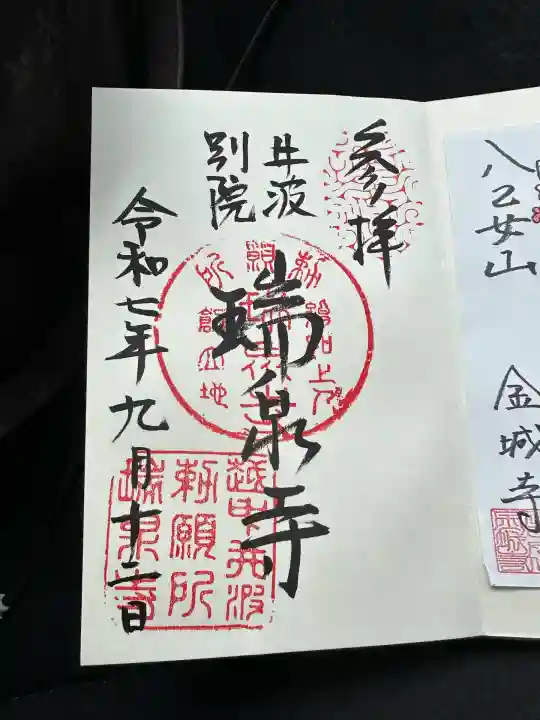 参拝
井波
別院
瑞泉寺
令和七年九月十三日
越中井波
勅願所
瑞泉寺
八乙女山
金城寺